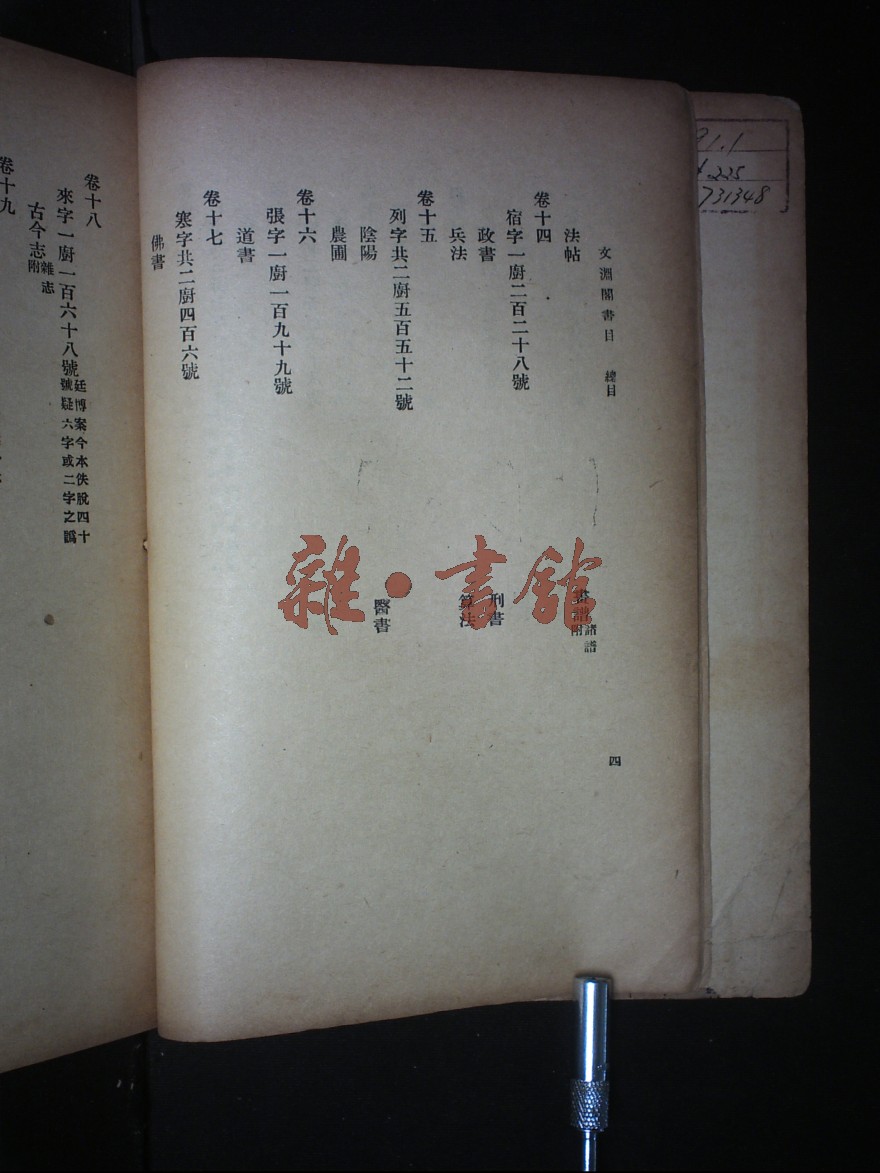 文淵閣書目 總目
四
法帖
畫譜諸譜附
卷十四
宿字一廚二百二十八號
政書
刑書
兵法
算法
卷十五
列字共二廚五百五十二號
陰陽
醫書
農圃
卷十六
張字一廚一百九十九號
道書
卷十七
寒字共二廚四百六號
佛書
卷十八
來字一廚一百六十八號廷博案今本佚脫四十
號疑六字或二字之譌
古今志雜志附
卷十九
雜·書館
91.1
225
731348